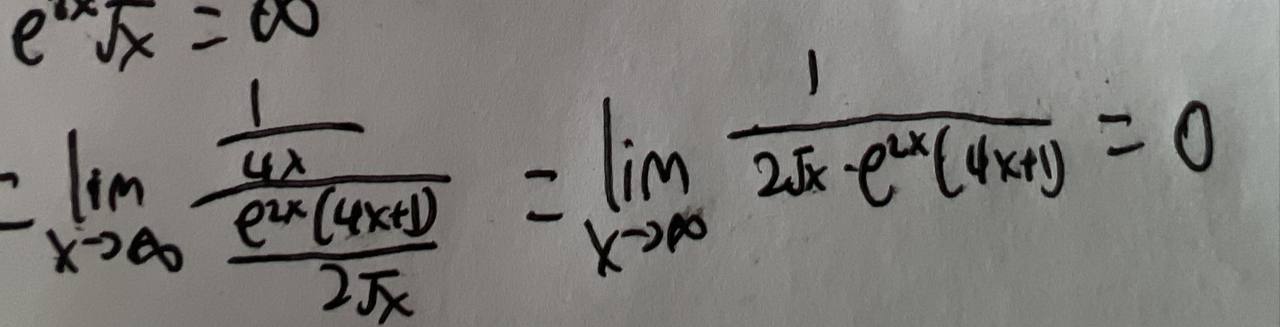 e^{2x}√x = ∞
= lim_{x→∞} \frac{\frac{1}{4x}}{\frac{e^{2x}(4x+1)}{2√x}} = lim_{x→∞} \frac{1}{2√x · e^{2x}(4x+1)} = 0